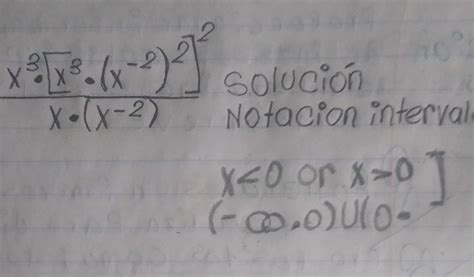 x³·[x³·(x⁻²)²]²
x·(x⁻²)
Solución
Notacion interval
x<0 or x>0]
(-∞.0)U(0-